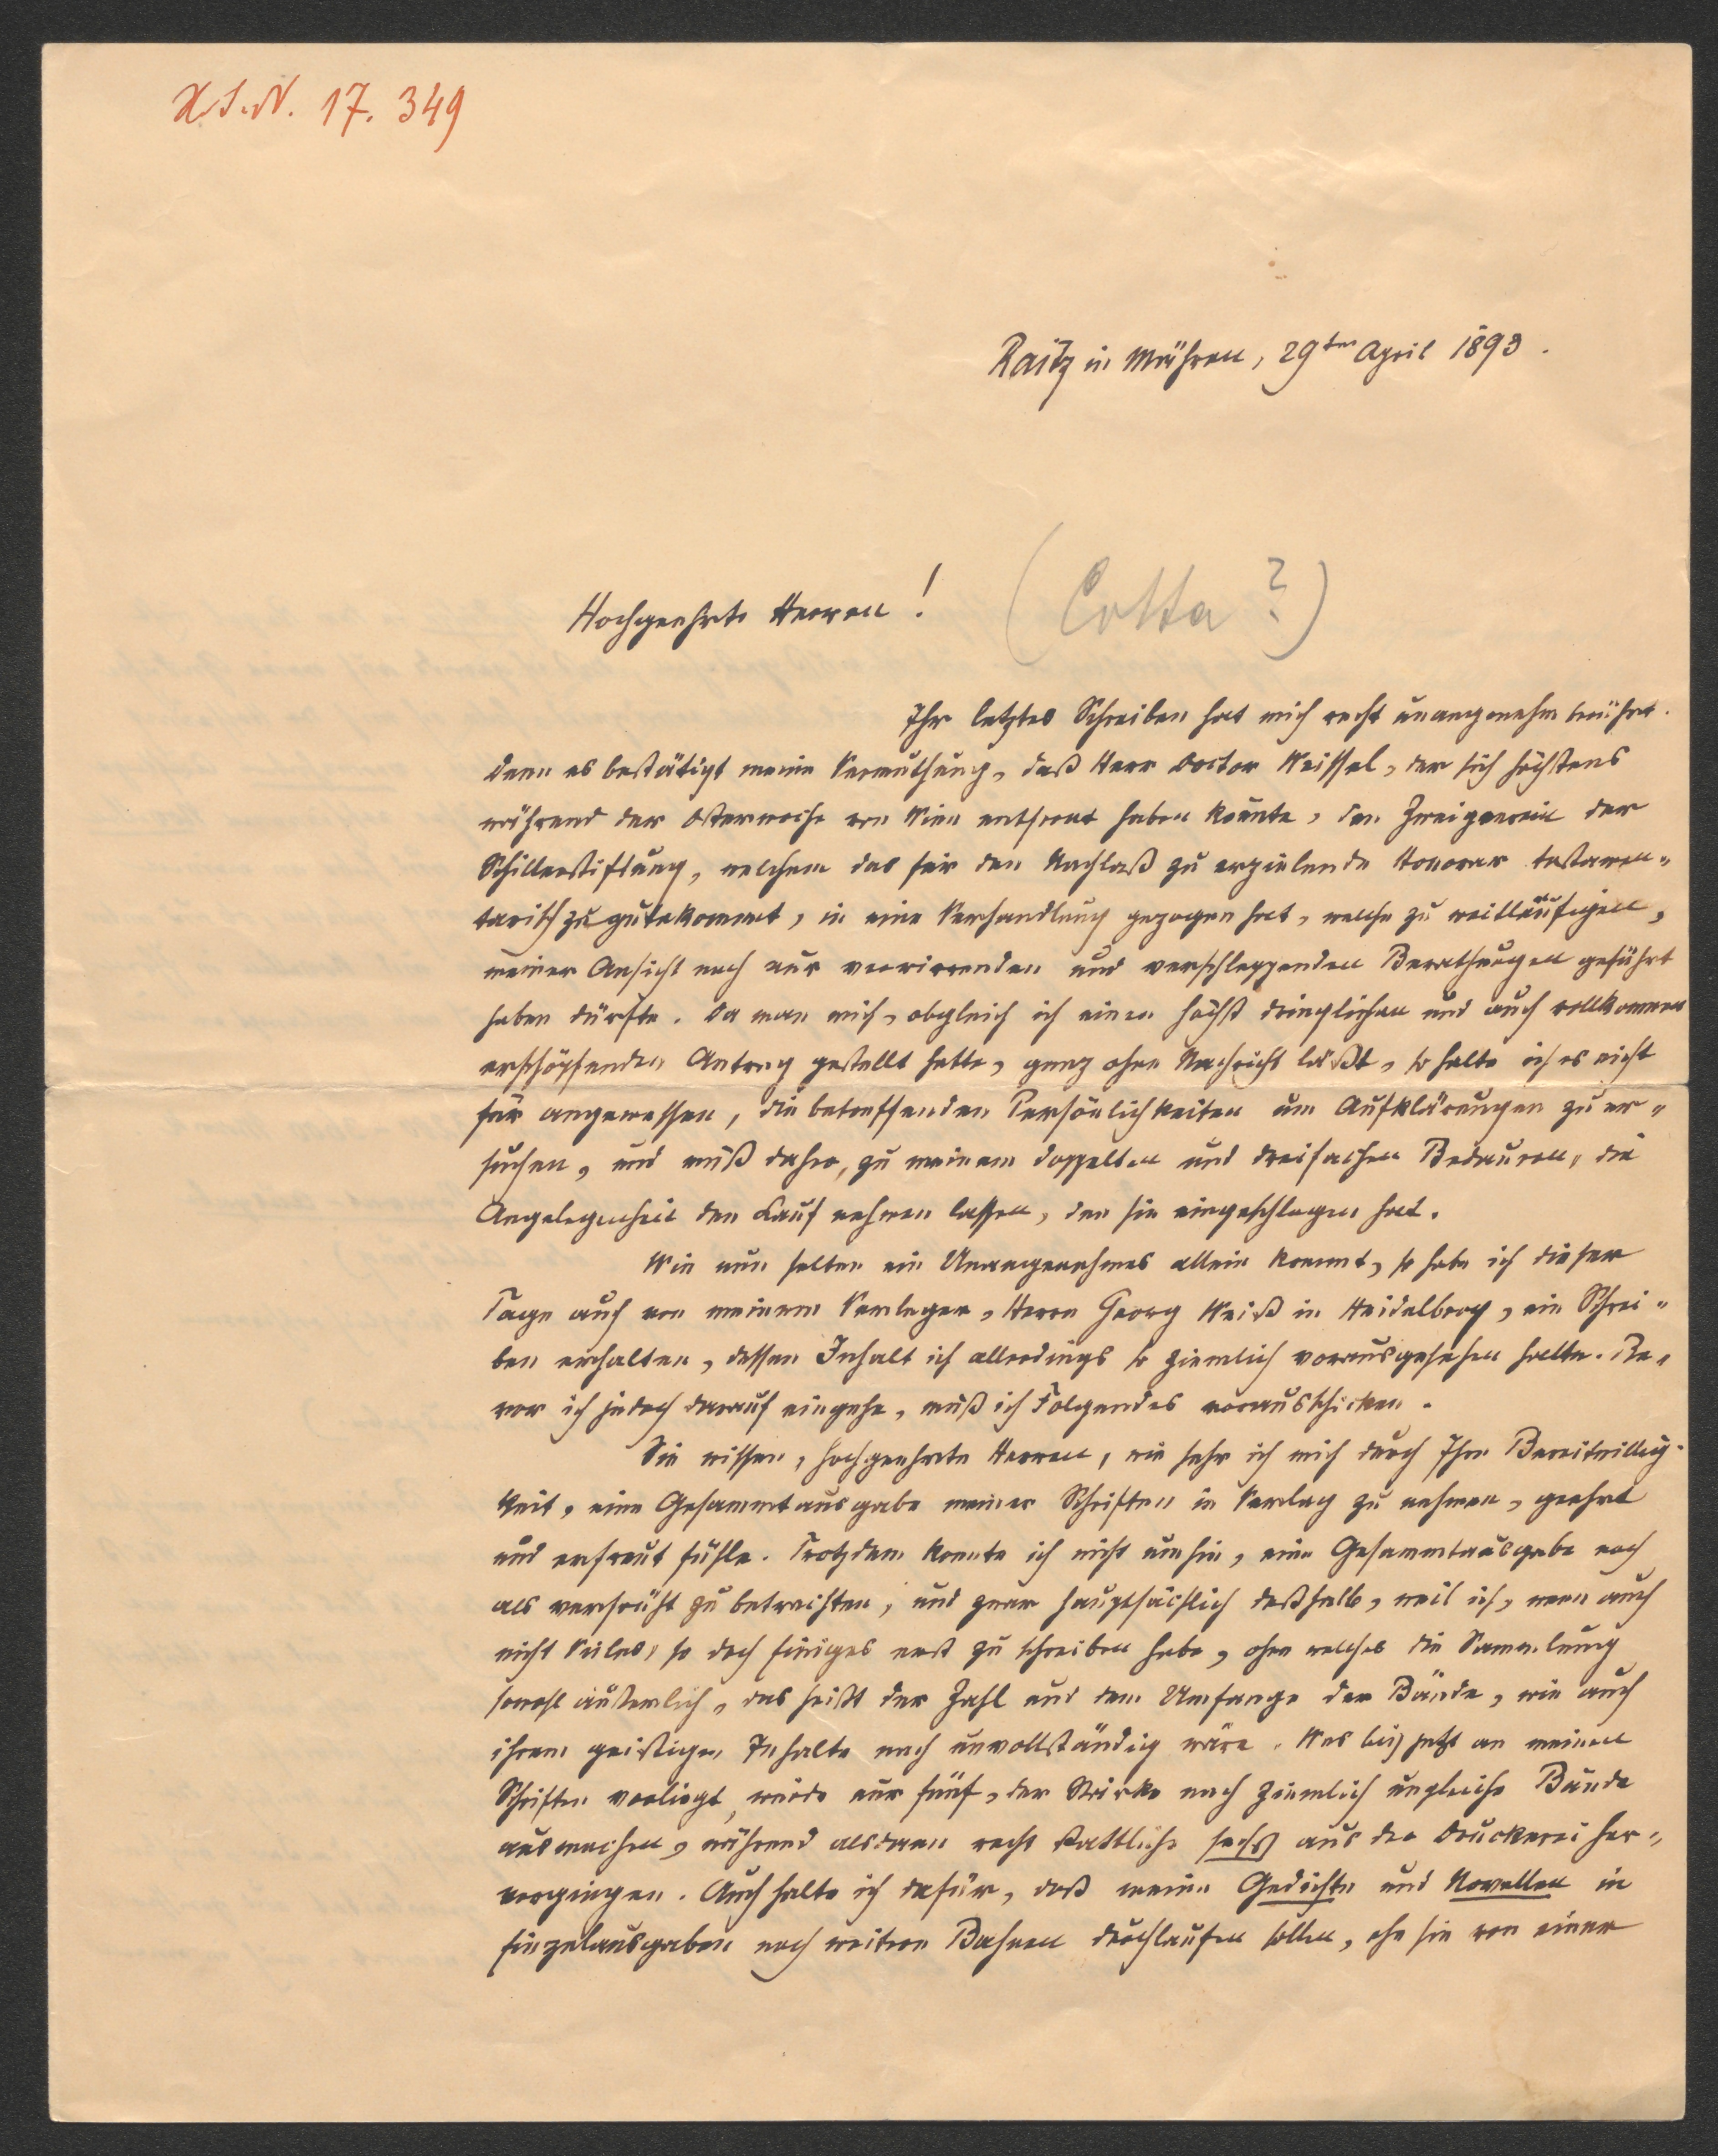 H.I.N. 17.349
Raitz in Mähren, 29ten April 1893.
Hochgeehrte Herren! (Cotta?)
Ihr letztes Schreiben hat mich recht unangenehm berührt.
Denn es bestätigt meine Vermuthung, daß Herr Doctor Weissel, der sich höchstens
während der Osterwoche von Wien entfernt haben konnte, den Zweigverein der
Schillerstiftung, welchem das für den Nachlaß zu erzielende Honorar testamen-
tarisch zu gute kommt, in eine Verhandlung gezogen hat, welche zu weitläufigen,
meiner Ansicht nach nur verwirrenden und verschleppenden Berathungen geführt
haben dürfte. Da man mich, obgleich ich einen höchst dringlichen und auch vollkommen
erschöpfenden Antrag gestellt hatte, ganz ohne Nachricht läßt, so halte ich es nicht
für angemessen, die betreffenden Persönlichkeiten um Aufklärungen zu er-
suchen, und muß daher, zu meinem doppelten und dreifachen Bedauern, die
Angelegenheit den Lauf nehmen lassen, den sie eingeschlagen hat.
Wie nun selten ein Unangenehmes allein kommt, so habe ich dieser
Tage auch von meinem Verleger, Herrn Georg Weiß in Heidelberg, ein Schrei-
ben erhalten, dessen Inhalt ich allerdings so ziemlich vorausgesehen hatte. Be-
vor ich jedoch darauf eingehe, muß ich Folgendes vorausschicken.
Sie wissen, hochgeehrte Herren, wie sehr ich mich durch Ihre Bereitwillig-
keit, eine Gesammtausgabe meiner Schriften in Verlag zu nehmen, geehrt
und erfreut fühle. Trotzdem konnte ich nicht umhin, eine Gesammtausgabe noch
als verfrüht zu betrachten, und zwar hauptsächlich deßhalb, weil ich, wenn auch
nicht Vieles, so doch Einiges erst zu schreiben habe, ohne welches die Sammlung
sowohl äußerlich, das heißt der Zahl und dem Umfange der Bände, wie auch
ihrem geistigen Inhalte nach unvollständig wäre. Was bis jetzt an meinen
Schriften vorliegt, würde nur fünf, der Stärke nach ziemlich ungleiche Bände
ausmachen, während alsdann recht stattliche sechs aus der Druckerei her-
vorgingen. Auch halte ich dafür, daß meine Gedichte und Novellen in
Einzelausgaben noch weitere Bahnen durchlaufen sollen, ehe sie von einer